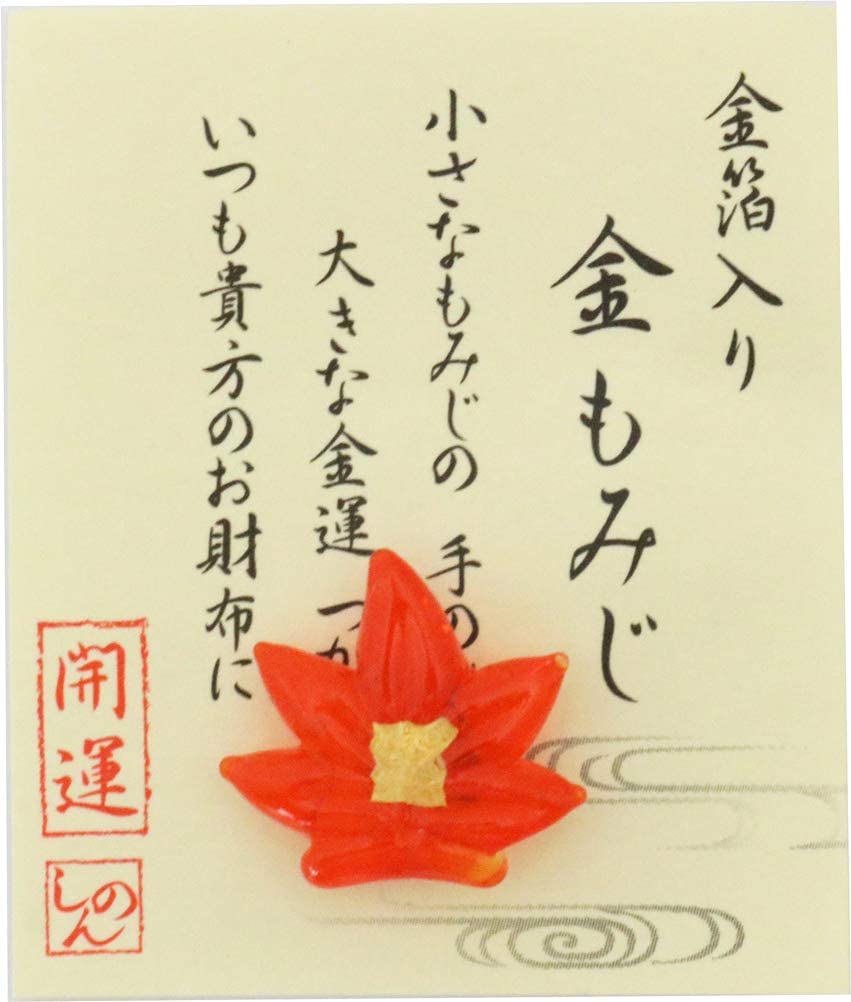 金箔入り
金もみじ
小さなもみじの 手の
大きな金運 つか
いつも貴方のお財布に
開運
しん
の